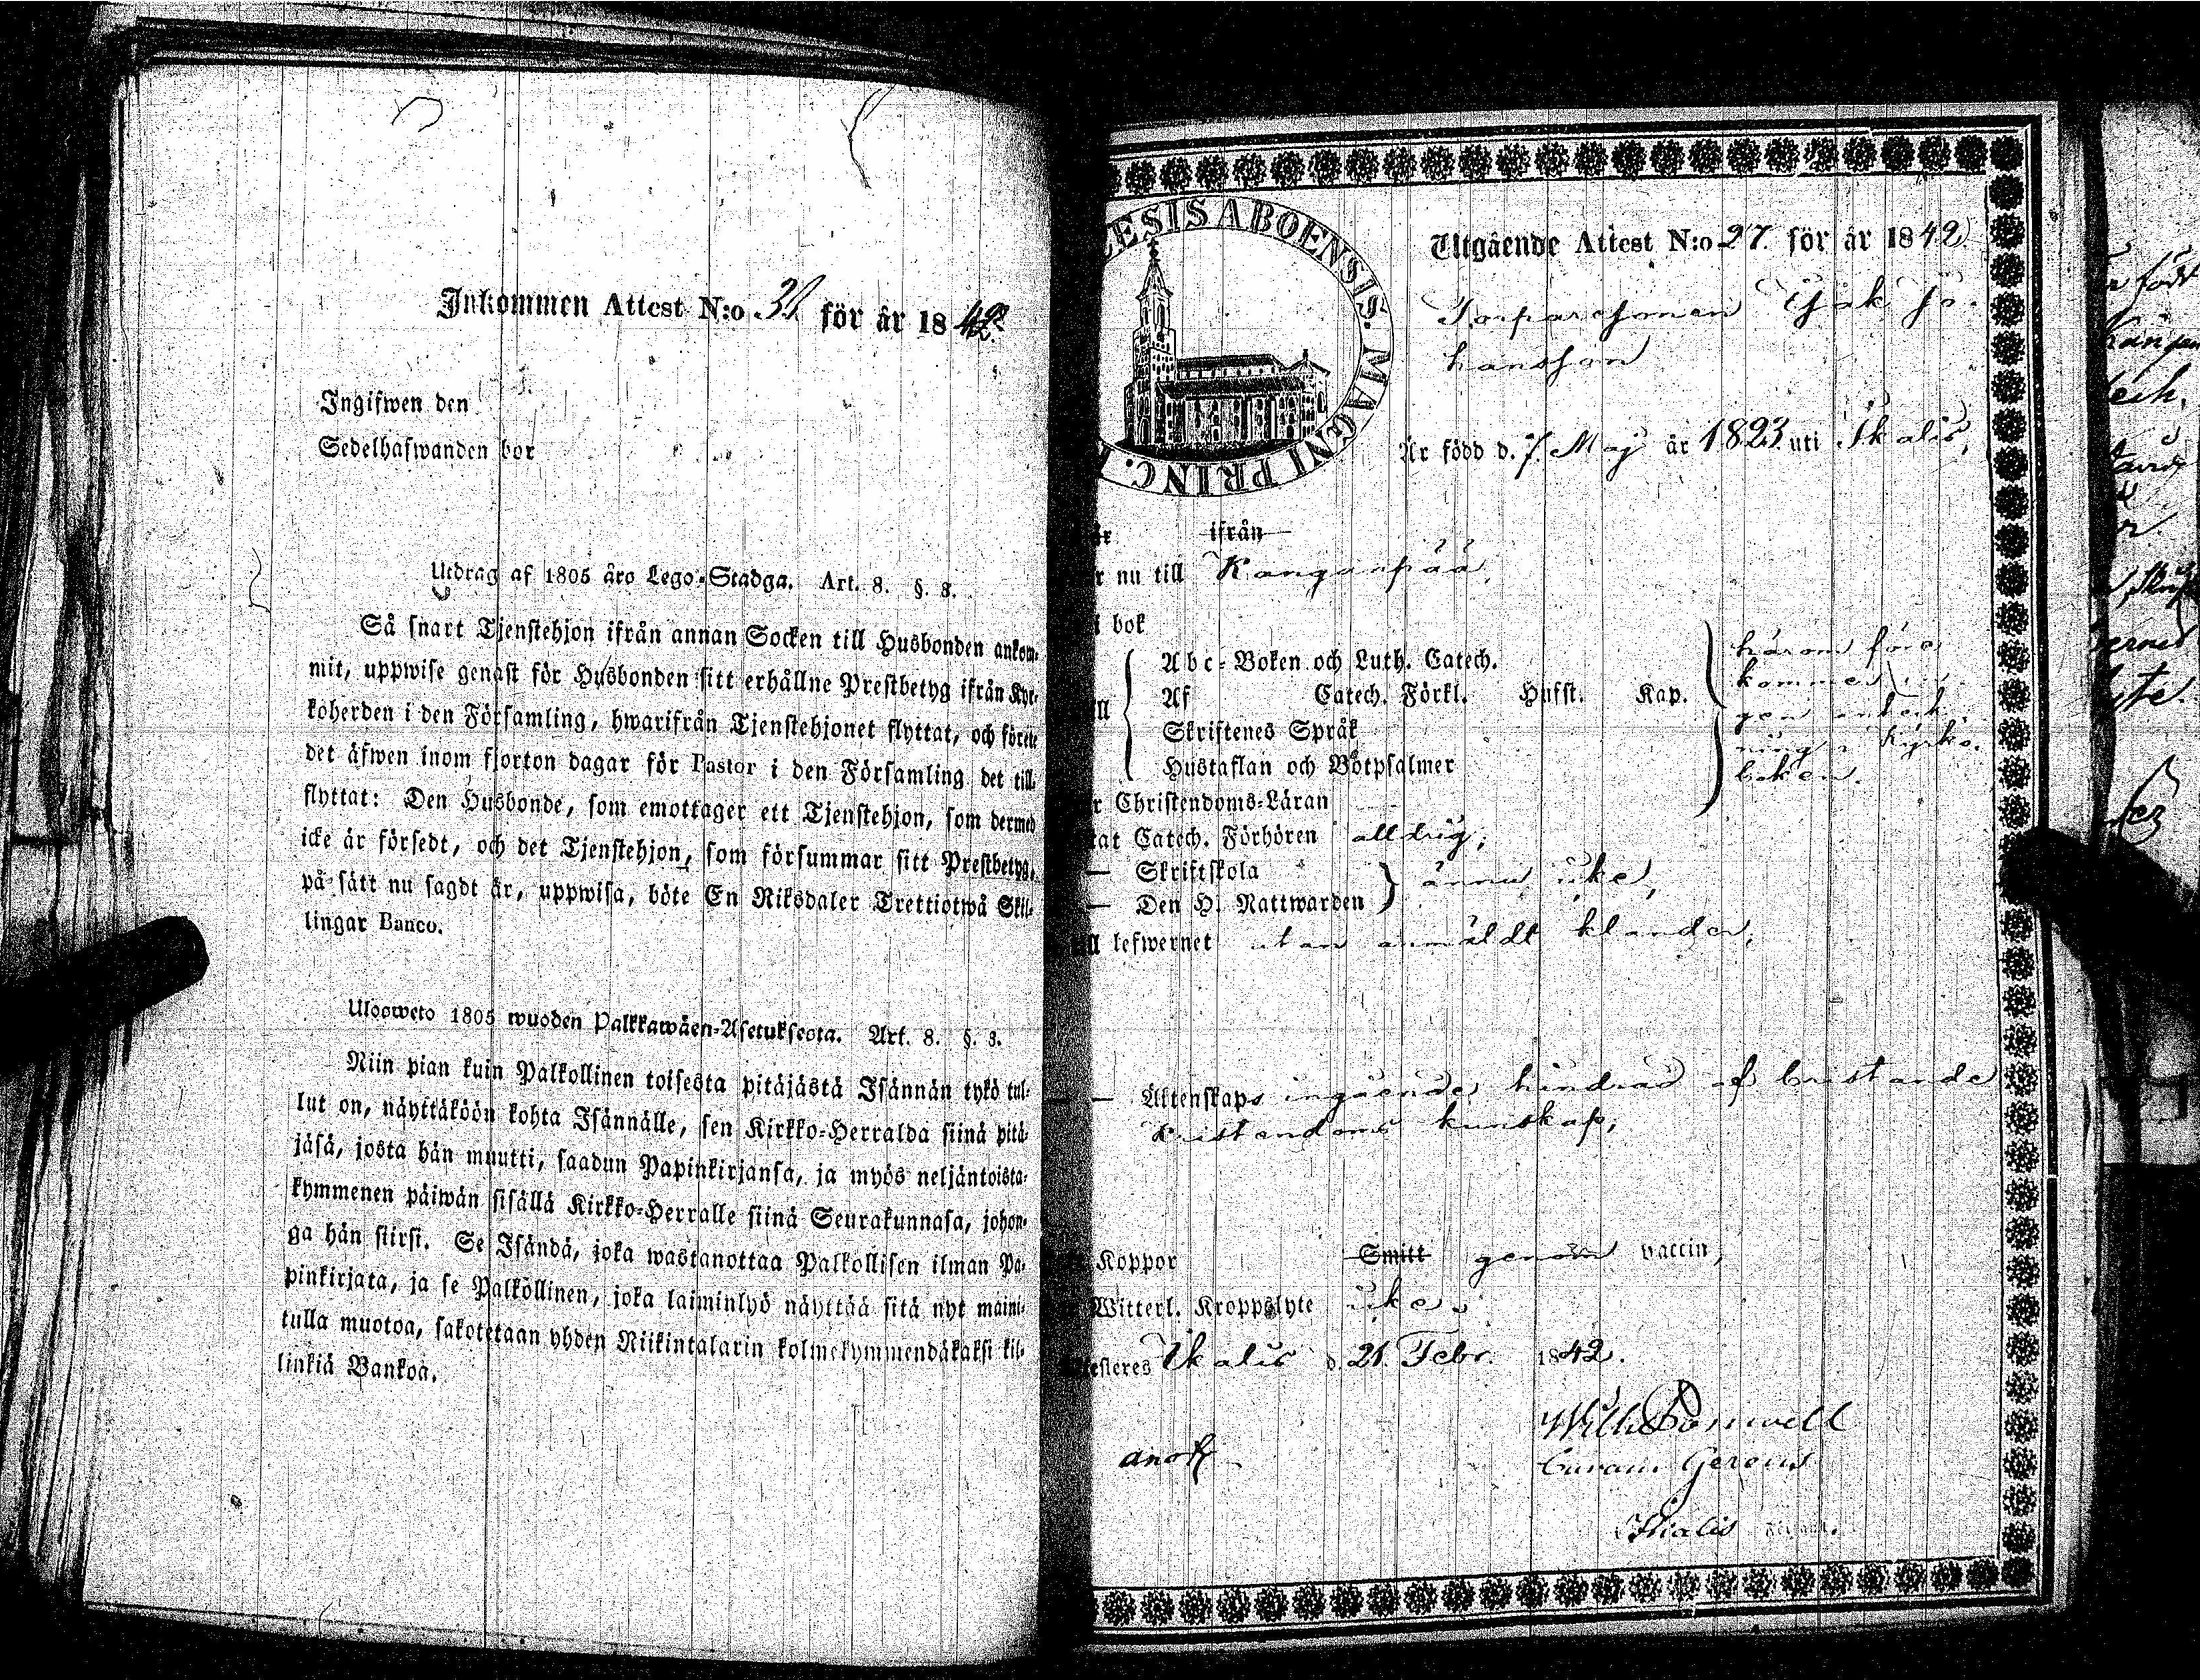 Inkommen Attest N:o för år 1842
Ingifwen den
Sedelhafwanden bor
Utdrag af 1805 åro Lego-Stadga. Art. 8. §. 3.
Så snart Tjenstehjon ifrån annan Socken till Husbonden ankom-
mit, uppwise genast för Husbonden sitt erhållne Prestbetyg ifrån Kyr-
koherden i den Församling, hwarifrån Tjenstehjonet flyttat, och förete
det äfwen inom fjorton dagar för Pastor i den Församling det till-
flyttat: Den Husbonde, som emottager ett Tjenstehjon, som dermed
icke är försedt, och det Tjenstehjon, som försummar sitt Prestbetyg,
på sätt nu sagdt är, uppwisa, böte En Riksdaler Trettiotwå Skil-
lingar Banco.
Ulosweto 1805 wuoden Palkkawäen-Asetuksesta. Art. 8. §. 3.
Niin pian kuin Palkollinen toisesta pitäjästä Isännän tykö tul-
lut on, näyttäköön kohta Isännälle, sen Kirkko-Herralda siinä pitä-
jäsä, josta hän muutti, saadun Papinkirjansa, ja myös neljäntoista-
kymmenen päiwän sisällä Kirkko-Herralle siinä Seurakunnasa, johon-
ga hän siirsi. Se Isändä, joka wastanottaa Palkollisen ilman Pa-
pinkirjata, ja se Palkollinen, joka laiminlyö näyttää sitä nyt maini-
tulla muotoa, sakotetaan yhden Riikintalarin kolmekymmendäkaksi kil-
linkiä Bankoa.
ESIS ABOENSIS. MAGNI PRINC.
Utgående Attest N:o 27. för år 1842
Torparesonen Isak Jo-
hansson
Är född d. 7. Maj år 1823 uti Ikalis,
ifrån
nu till Kanganpää,
i bok
Abc-Boken och Luth. Catech.
Af Catech. Förkl. Husst. Kap.
Skriftenes Språk
Hustaflan och Botpsalmer
härom före
kommer in-
gen anteck-
ning i Kyrko-
boken.
Christendoms-Läran
Catech. Förhören alldrig,
— Skriftskola
— Den H. Nattwarden
ännu icke,
lefwernet utan anmäldt klander,
— — Äktenskaps ingående hindrad af bristande
kristendoms kunskap,
Koppor Smitt genom vaccin,
Witterl. Kroppslyte icke.
Ikalis d. 21. Febr. 1842.
Wilh.
Curam Gerens
Ikalis